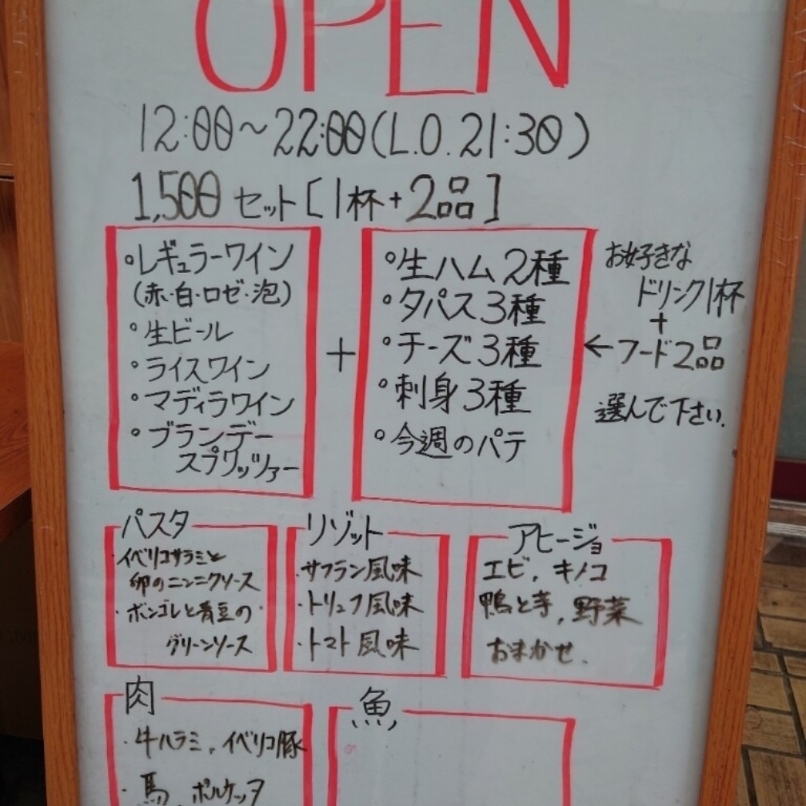 OPEN
12:00～22:00(L.O.21:30)
1,500 セット[1杯+2品]
・レギュラーワイン
(赤・白・ロゼ・泡)
・生ビール
・ライスワイン
・マディラワイン
・ブランデー
スプリッツァー
+
・生ハム2種
・タパス3種
・チーズ3種
・刺身3種
・今週のパテ
お好きな
ドリンク1杯
+
←フード2品
選んで下さい.
パスタ
・イベリコサラミと
卵のニンニクソース
・ボンゴレと青豆の
グリーンソース
リゾット
・サフラン風味
・トリュフ風味
・トマト風味
アヒージョ
エビ, キノコ
鴨と芋, 野菜
おまかせ.
肉
・牛ハラミ, イベリコ豚
・馬, ポルケッタ
魚